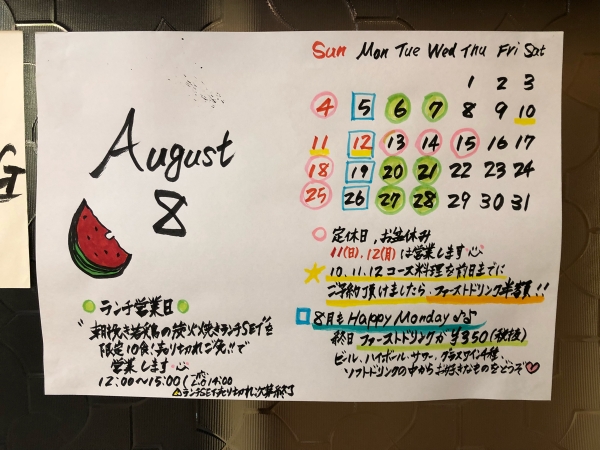 G
August
8
Sun Mon Tue Wed Thu Fri Sat
1 2 3
4 5 6 7 8 9 10
11 12 13 14 15 16 17
18 19 20 21 22 23 24
25 26 27 28 29 30 31
定休日、お盆休み
11(日), 12(月)は営業します
10, 11, 12 コース料理を前日までに
ご予約頂けましたら、ファーストドリンク半額!!
8月も Happy Monday ♪♪
終日 ファーストドリンクが ¥350 (税抜)
ビール、ハイボール、サワー、グラスワイン4種、
ソフトドリンクの中からお好きなものをどうぞ♡
ランチ営業日
"朝挽き若鶏の炭火焼きランチSET"を
限定10食!売り切れご免!!で
営業します
12:00〜15:00 (L.o 14:00
⚠ランチSET売り切れ次第終了